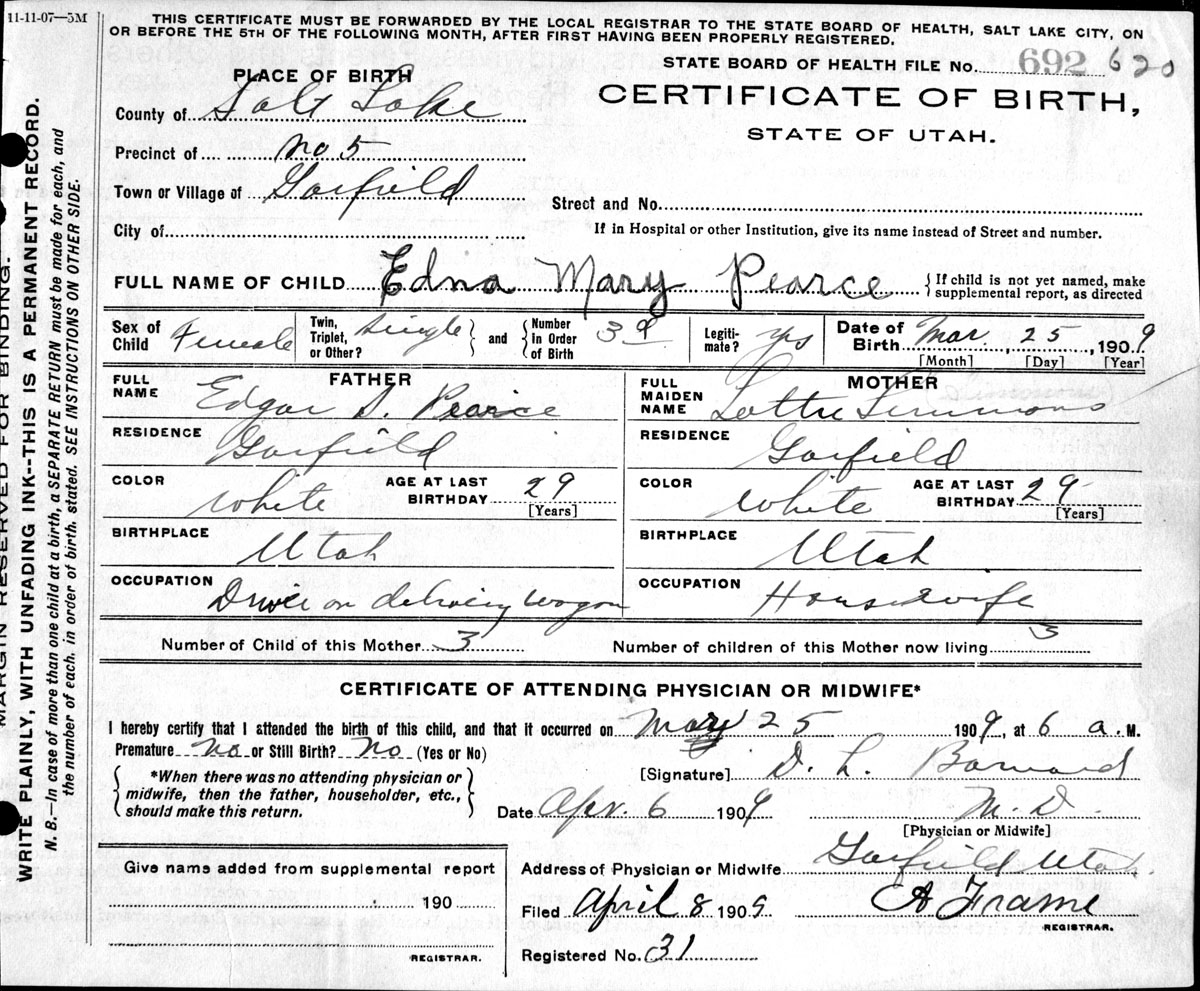 11-11-07—5M
THIS CERTIFICATE MUST BE FORWARDED BY THE LOCAL REGISTRAR TO THE STATE BOARD OF HEALTH, SALT LAKE CITY, ON
OR BEFORE THE 5TH OF THE FOLLOWING MONTH, AFTER FIRST HAVING BEEN PROPERLY REGISTERED.
STATE BOARD OF HEALTH FILE No. 692 620
CERTIFICATE OF BIRTH,
STATE OF UTAH.
PLACE OF BIRTH
County of Salt Lake
Precinct of No 5
Town or Village of Garfield
Street and No.
City of
If in Hospital or other Institution, give its name instead of Street and number.
FULL NAME OF CHILD Edna Mary Pearce {If child is not yet named, make
supplemental report, as directed
Sex of Child Female
Twin, Triplet, or Other? single
and
Number In Order of Birth 3d
Legiti-mate? Yes
Date of Birth Mar. 25, 1909
[Month] [Day] [Year]
FATHER
FULL NAME Edgar S. Pearce
RESIDENCE Garfield
COLOR white
AGE AT LAST BIRTHDAY 29
[Years]
BIRTHPLACE Utah
OCCUPATION Driver on delivery wagon
MOTHER
FULL MAIDEN NAME Lottie Simmons
RESIDENCE Garfield
COLOR white
AGE AT LAST BIRTHDAY 29
[Years]
BIRTHPLACE Utah
OCCUPATION Housewife
Number of Child of this Mother 3
Number of children of this Mother now living 3
CERTIFICATE OF ATTENDING PHYSICIAN OR MIDWIFE*
I hereby certify that I attended the birth of this child, and that it occurred on Mar 25 1909, at 6 a. M.
Premature No or Still Birth? No (Yes or No)
*When there was no attending physician or
midwife, then the father, householder, etc.,
should make this return.
[Signature] D. L. Barnard
Date Apr. 6 1909 M. D.
[Physician or Midwife]
Address of Physician or Midwife Garfield Utah.
Filed April 8 1909 A Frame
REGISTRAR.
Registered No. 31
Give name added from supplemental report
190
REGISTRAR.
MARGIN RESERVED FOR BINDING.
WRITE PLAINLY, WITH UNFADING INK--THIS IS A PERMANENT RECORD.
N. B.—In case of more than one child at a birth, a SEPARATE RETURN must be made for each, and
the number of each. in order of birth. stated. SEE INSTRUCTIONS ON OTHER SIDE.